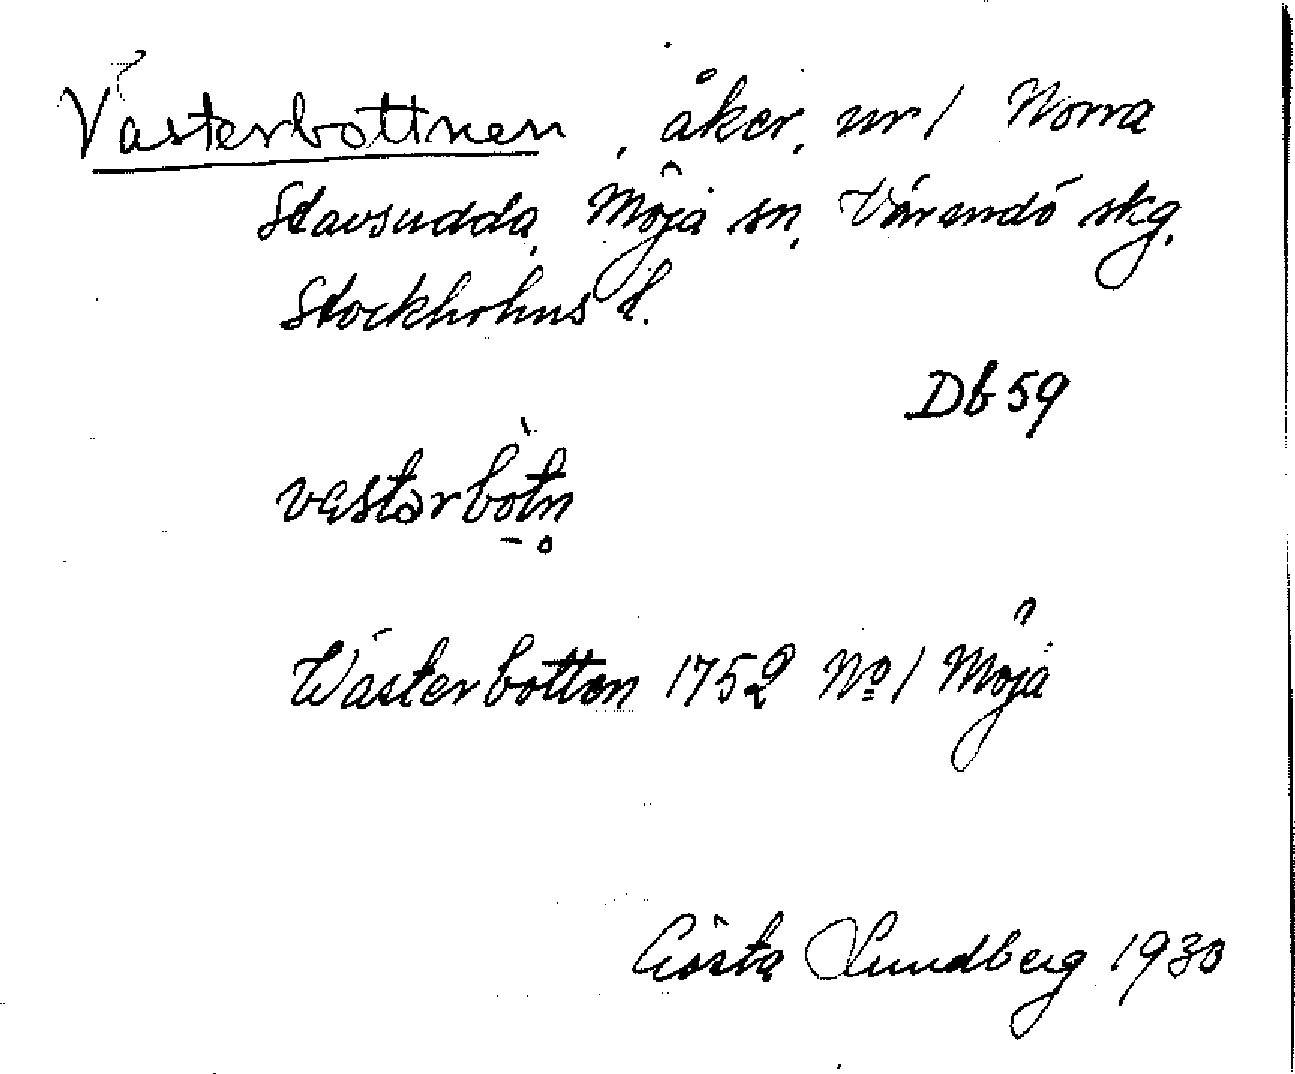 Västerbottnen, åker, nr 1 Norra
Stavsudda, Möja sn, Värmdö skg,
Stockholms l.
Db 59
västərbòtn̥
Wästerbotten 1752 No 1 Möja
Gösta Lundberg 1930